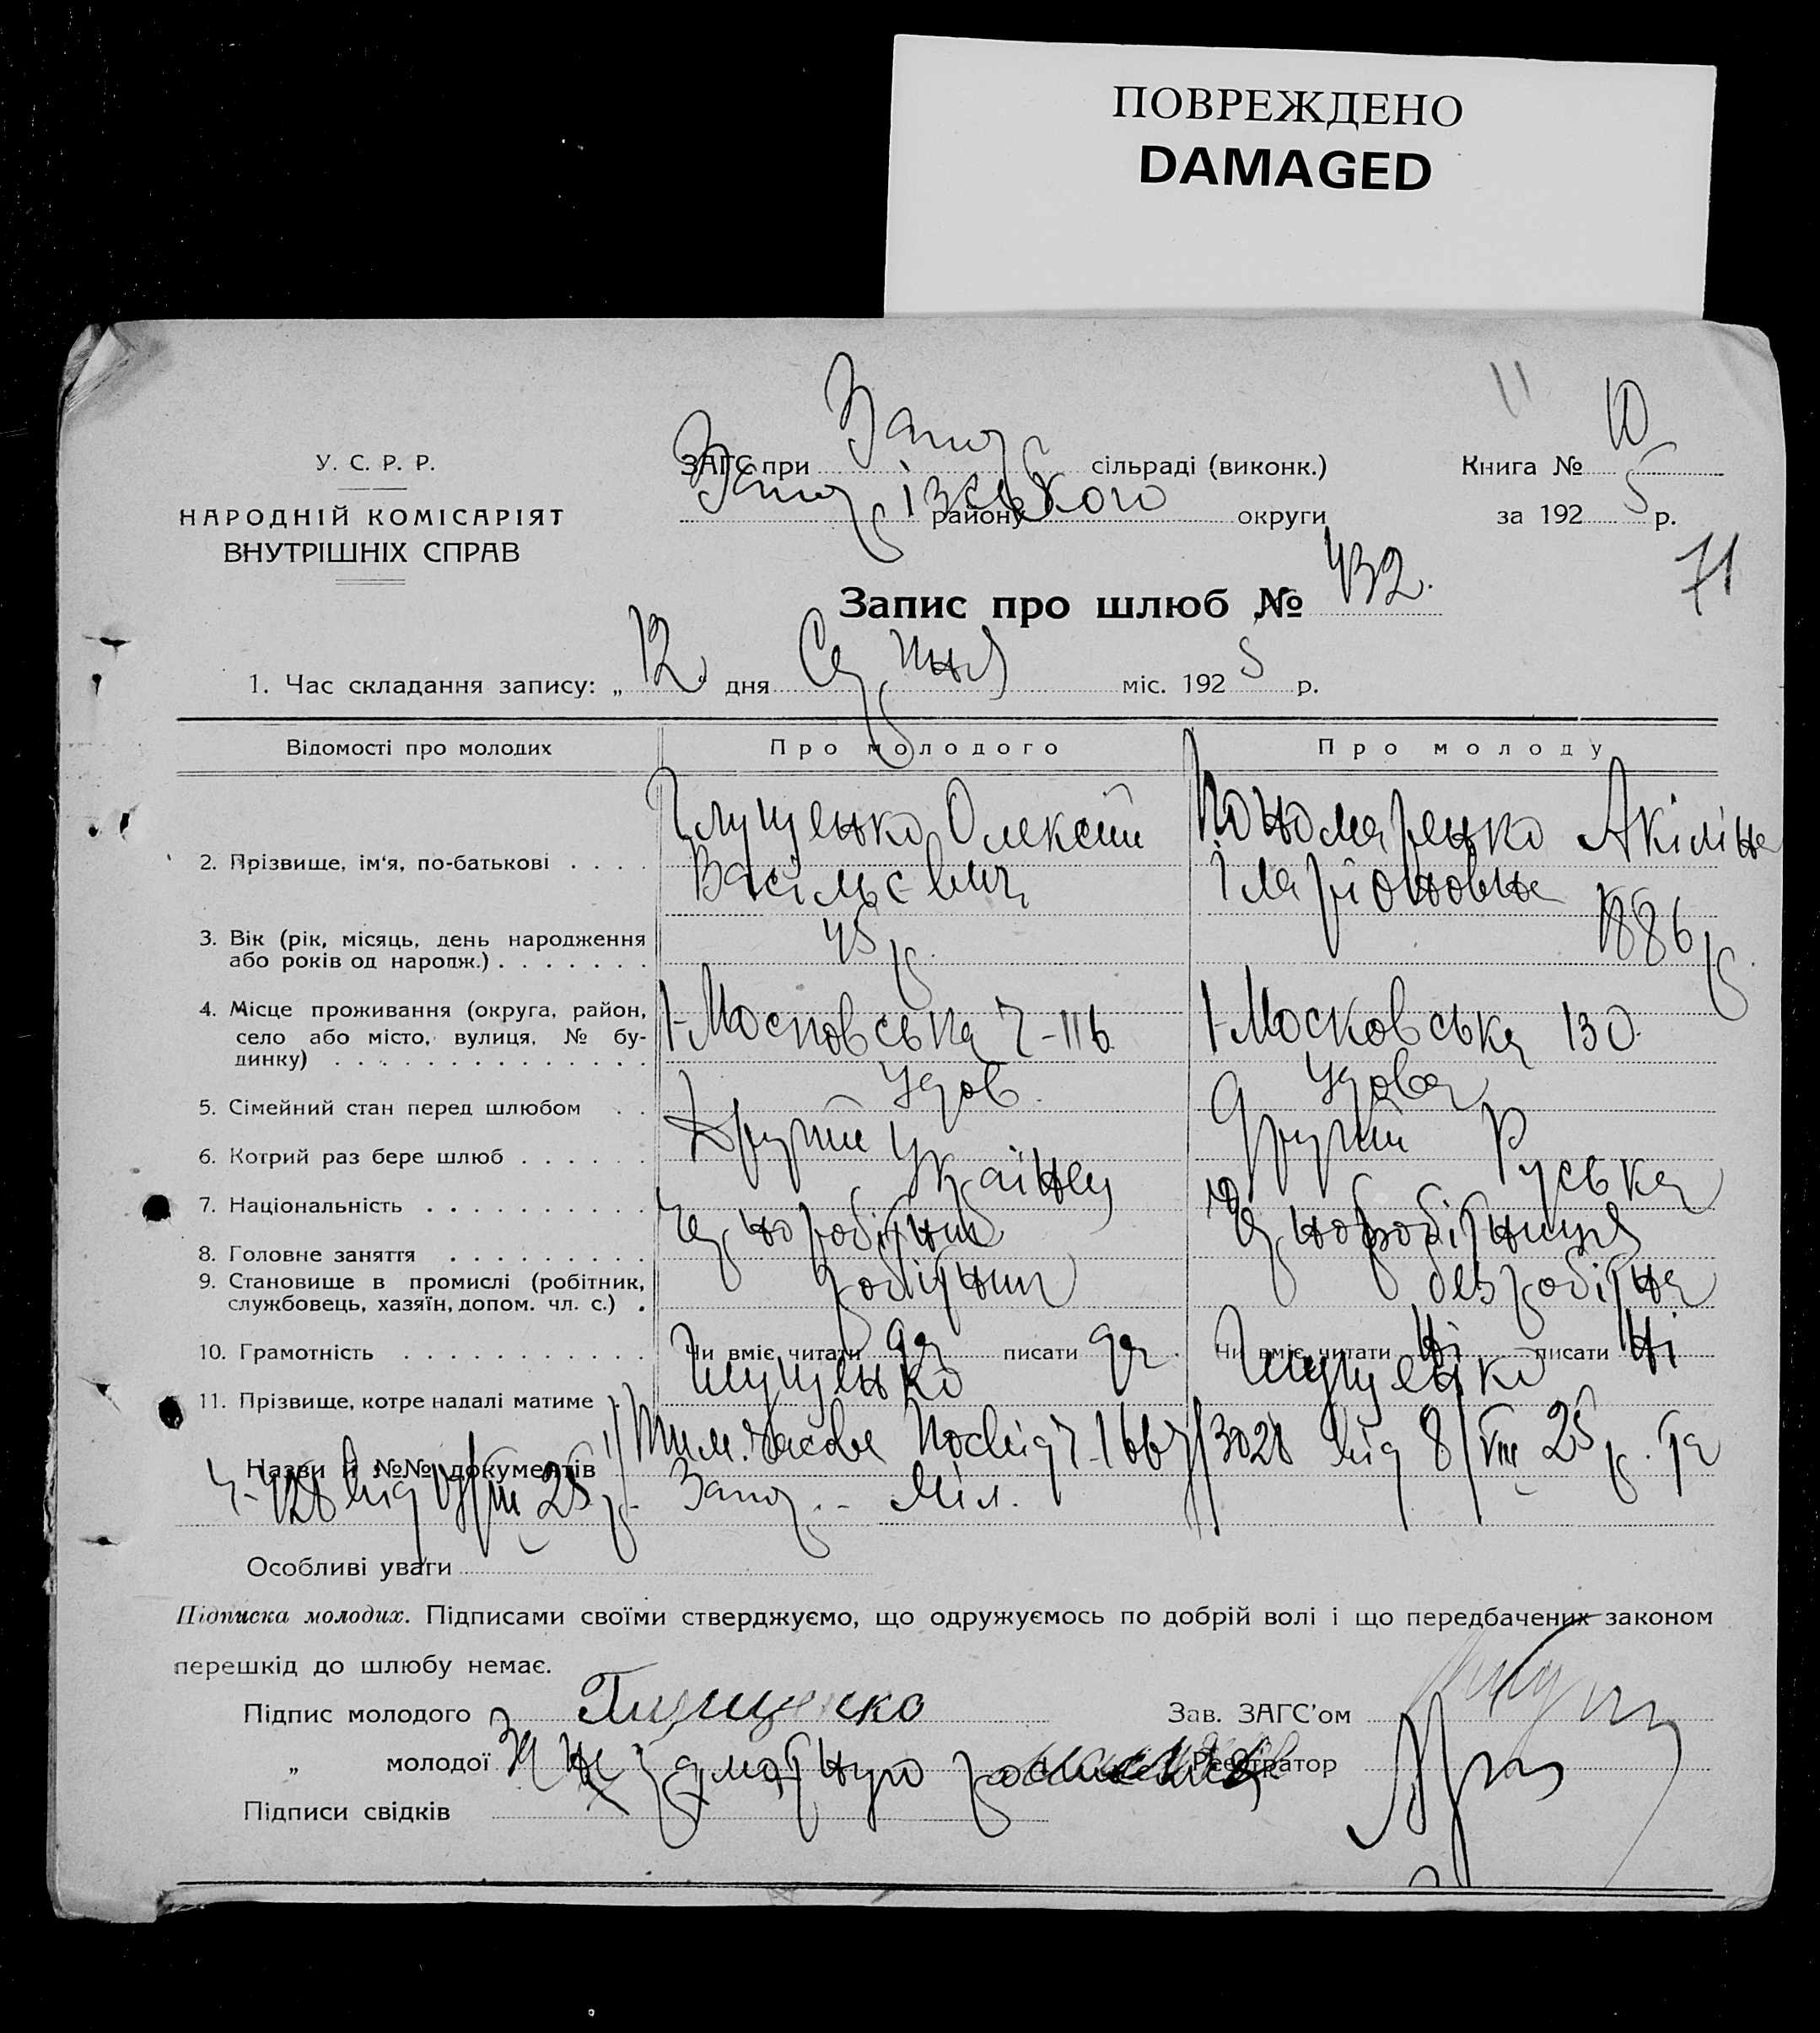 ПОВРЕЖДЕНО
DAMAGED
11
У. С. Р. Р.
НАРОДНІЙ КОМІСАРІЯТ
ВНУТРІШНІХ СПРАВ
ЗАГС при Запор сільраді (виконк.)
Запорізського району округи
Книга № 10
за 1925 р.
71
Запис про шлюб № 432.
1. Час складання запису: „12" дня Серпня міс. 1925 р.
Відомості про молодих Про молодого Про молоду
2. Прізвище, ім'я, по-батькові . . . . Глущенко Олексій Васільєвич Пономаренко Акіліна Іларіоновна
3. Вік (рік, місяць, день народження або років од народж.) . . . . . . . 45 р. 1886 р.
4. Місце проживання (округа, район, село або місто, вулиця, № будинку) . . . . . . . . . . . . . . І-Московська 116 І-Московська 130
5. Сімейний стан перед шлюбом . . Удов. Удова
6. Котрий раз бере шлюб . . . . . . Другий Другий
7. Національність . . . . . . . . . . Українец Руська
8. Головне заняття . . . . . . . . . Чорноробітник Чорноробітниця
9. Становище в промислі (робітник, службовець, хазяїн, допом. чл. с.) . робітник безробітна
10. Грамотність . . . . . . . . . . . Чи вміє читати да писати да. Чи вміє читати Ні писати Ні
11. Прізвище, котре надалі матиме . Глущенко Глущенко
Назви й №№ документів Тим. часове Посвід 3028 від 8/VIII 25 р. та
428 від 25 р. Запор. Міл.
Особливі уваги
Підписка молодих. Підписами своїми стверджуємо, що одружуємось по добрій волі і що передбачених законом
перешкід до шлюбу немає.
Підпис молодого Глущенко Зав. ЗАГС'ом
„ молодої За неграмотную Реєстратор
Підписи свідків